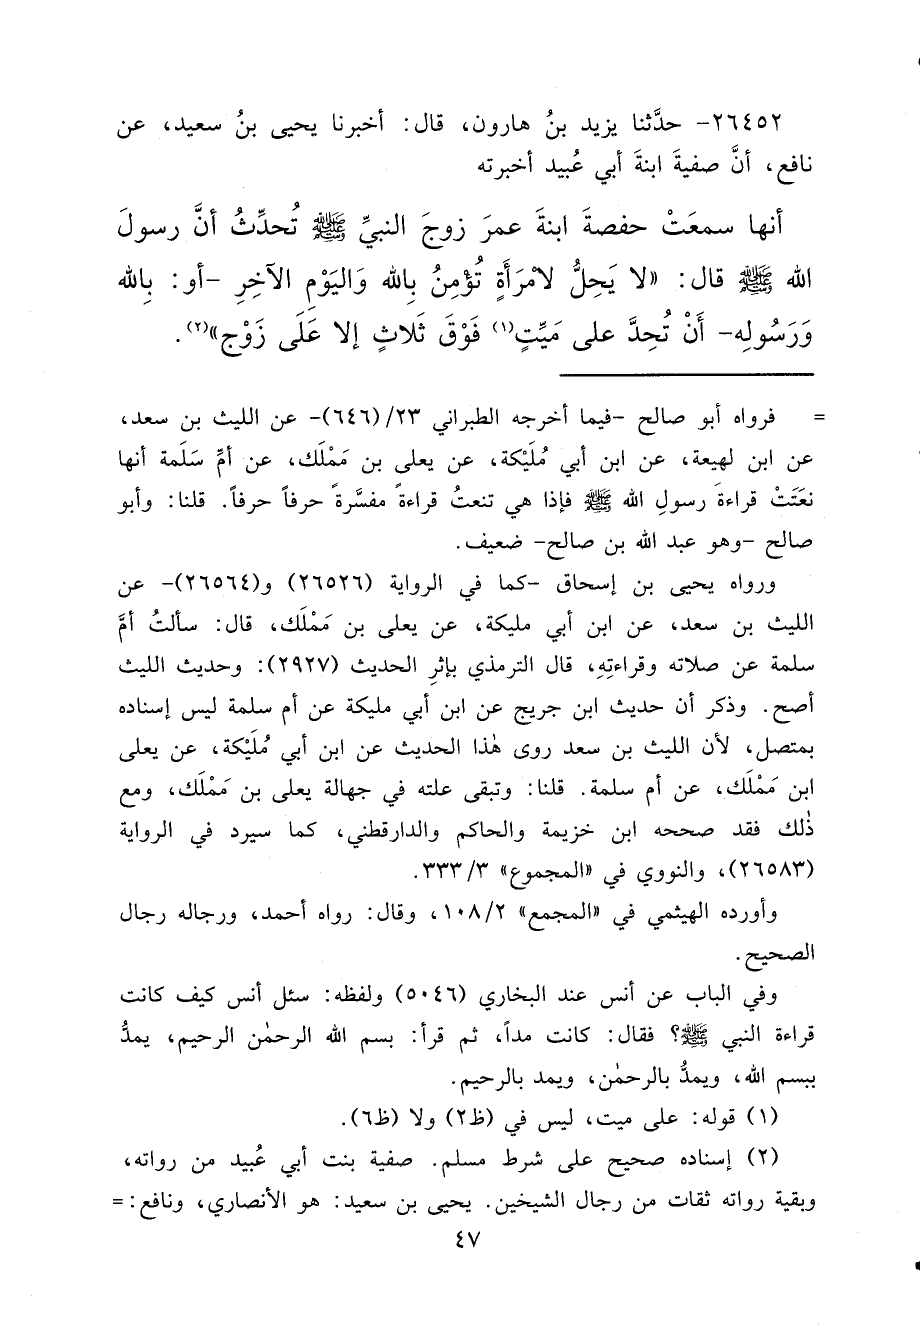 ٢٦٤٥٢- حدَّثنا يزيد بنُ هارون، قال: أخبرنا يحيى بنُ سعيد، عن
نافع، أنَّ صفيةَ ابنةَ أبي عُبيد أخبرته
أنها سمعَتْ حفصةَ ابنةَ عمرَ زوجَ النبيِّ ﷺ تُحدِّثُ أنَّ رسولَ
الله ﷺ قال: «لا يَحِلُّ لامْرَأَةٍ تُؤْمِنُ بِالله وَاليَوْمِ الآخِرِ -أو: بِالله
وَرَسُولِه- أَنْ تُحِدَّ على مَيِّتٍ(١) فَوْقَ ثَلاثٍ إلا عَلَى زَوْج»(٢).
= فرواه أبو صالح -فيما أخرجه الطبراني ٢٣/(٦٤٦)- عن الليث بن سعد،
عن ابن لهيعة، عن ابن أبي مُلَيْكة، عن يعلى بن مَمْلَك، عن أمِّ سَلَمة أنها
نعَتَتْ قراءةَ رسولِ الله ﷺ فإذا هي تنعتُ قراءةً مفسَّرةً حرفاً حرفاً. قلنا: وأبو
صالح -وهو عبد الله بن صالح- ضعيف.
ورواه يحيى بن إسحاق -كما في الرواية (٢٦٥٢٦) و(٢٦٥٦٤)- عن
الليث بن سعد، عن ابن أبي مليكة، عن يعلى بن مَمْلَك، قال: سألتُ أمَّ
سلمة عن صلاته وقراءتِهِ، قال الترمذي بإثرِ الحديث (٢٩٢٧): وحديث الليث
أصح. وذكر أن حديث ابن جريج عن ابن أبي مليكة عن أم سلمة ليس إسناده
بمتصل، لأن الليث بن سعد روى هٰذا الحديث عن ابن أبي مُلَيْكة، عن يعلى
ابن مَمْلَك، عن أم سلمة. قلنا: وتبقى علته في جهالة يعلى بن مَمْلَك، ومع
ذٰلك فقد صححه ابن خزيمة والحاكم والدارقطني، كما سيرد في الرواية
(٢٦٥٨٣)، والنووي في «المجموع» ٣٣٣/٣.
وأورده الهيثمي في «المجمع» ١٠٨/٢، وقال: رواه أحمد، ورجاله رجال
الصحيح.
وفي الباب عن أنس عند البخاري (٥٠٤٦) ولفظه: سئل أنس كيف كانت
قراءة النبي ﷺ؟ فقال: كانت مداً، ثم قرأ: بسم الله الرحمٰن الرحيم، يمدُّ
ببسم الله، ويمدُّ بالرحمٰن، ويمد بالرحيم.
(١) قوله: على ميت، ليس في (ظ٢) ولا (ظ٦).
(٢) إسناده صحيح على شرط مسلم. صفية بنت أبي عُبيد من رواته،
وبقية رواته ثقات من رجال الشيخين. يحيى بن سعيد: هو الأنصاري، ونافع: =
٤٧